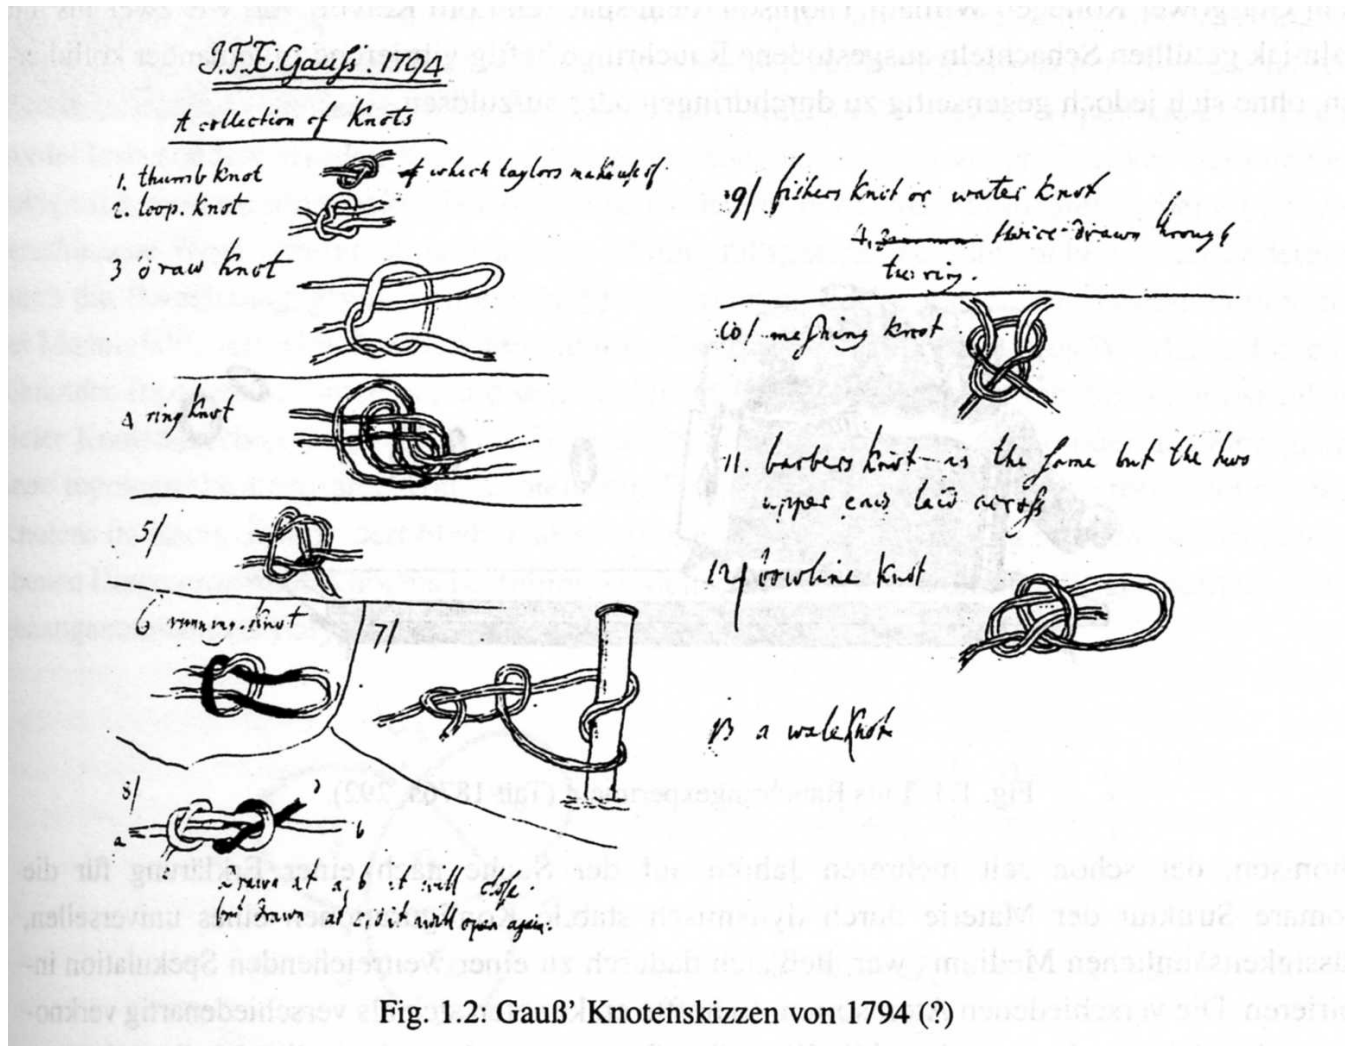 J.F.C. Gauß. 1794
A collection of Knots
1. thumb knot of which taylors make use of.
2. loop. knot
3 draw knot
4 ring knot
5/
6 running. knot
7/
8/
a b
draws at a, b it will close.
but drawn at it will open again.
9/ fishers knot or water knot
twice draws through
the ring.
10/ meshing knot
11. barbers knot is the same but the two
upper ends laid across
12/ bowline knot
13 a wale knot
Fig. 1.2: Gauß' Knotenskizzen von 1794 (?)